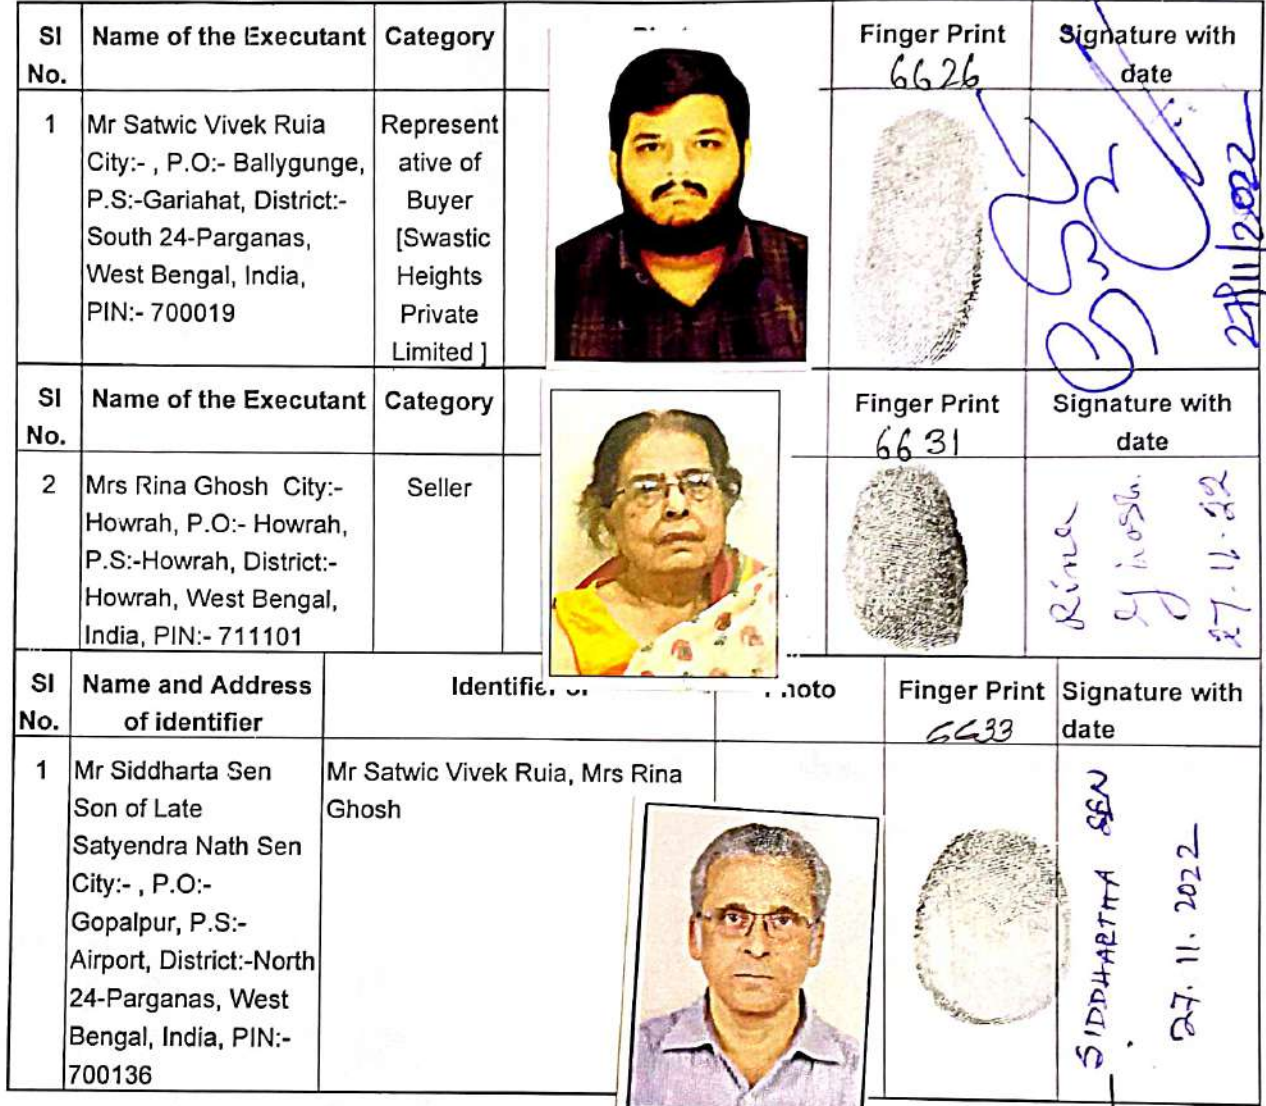 Sl No.
Name of the Executant
Category
Finger Print
6626
Signature with date
1
Mr Satwic Vivek Ruia
City:- , P.O:- Ballygunge,
P.S:-Gariahat, District:-
South 24-Parganas,
West Bengal, India,
PIN:- 700019
Represent
ative of
Buyer
[Swastic
Heights
Private
Limited ]
27/11/2022
Sl No.
Name of the Executant
Category
Finger Print
6631
Signature with date
2
Mrs Rina Ghosh City:-
Howrah, P.O:- Howrah,
P.S:-Howrah, District:-
Howrah, West Bengal,
India, PIN:- 711101
Seller
Rina
Ghosh.
27.11.22
Sl No.
Name and Address
of identifier
Identifier of
Photo
Finger Print
6633
Signature with
date
1
Mr Siddharta Sen
Son of Late
Satyendra Nath Sen
City:- , P.O:-
Gopalpur, P.S:-
Airport, District:-North
24-Parganas, West
Bengal, India, PIN:-
700136
Mr Satwic Vivek Ruia, Mrs Rina
Ghosh
SIDDHARTHA SEN
27.11.2022